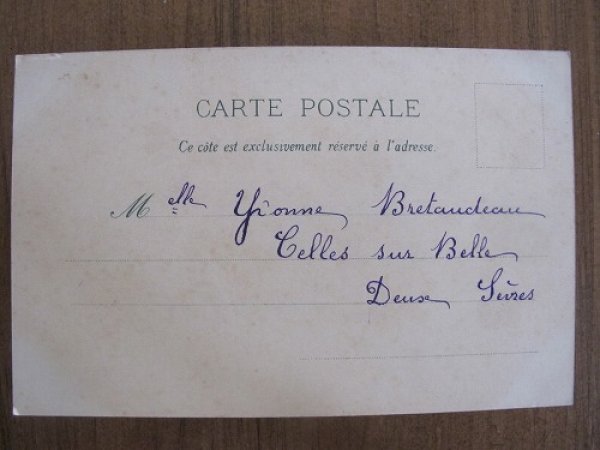 CARTE POSTALE
Ce côte est exclusivement réservé à l'adresse.
Melle Yvonne Bretaudeau
Celles sur Belle
Deux Sèvres